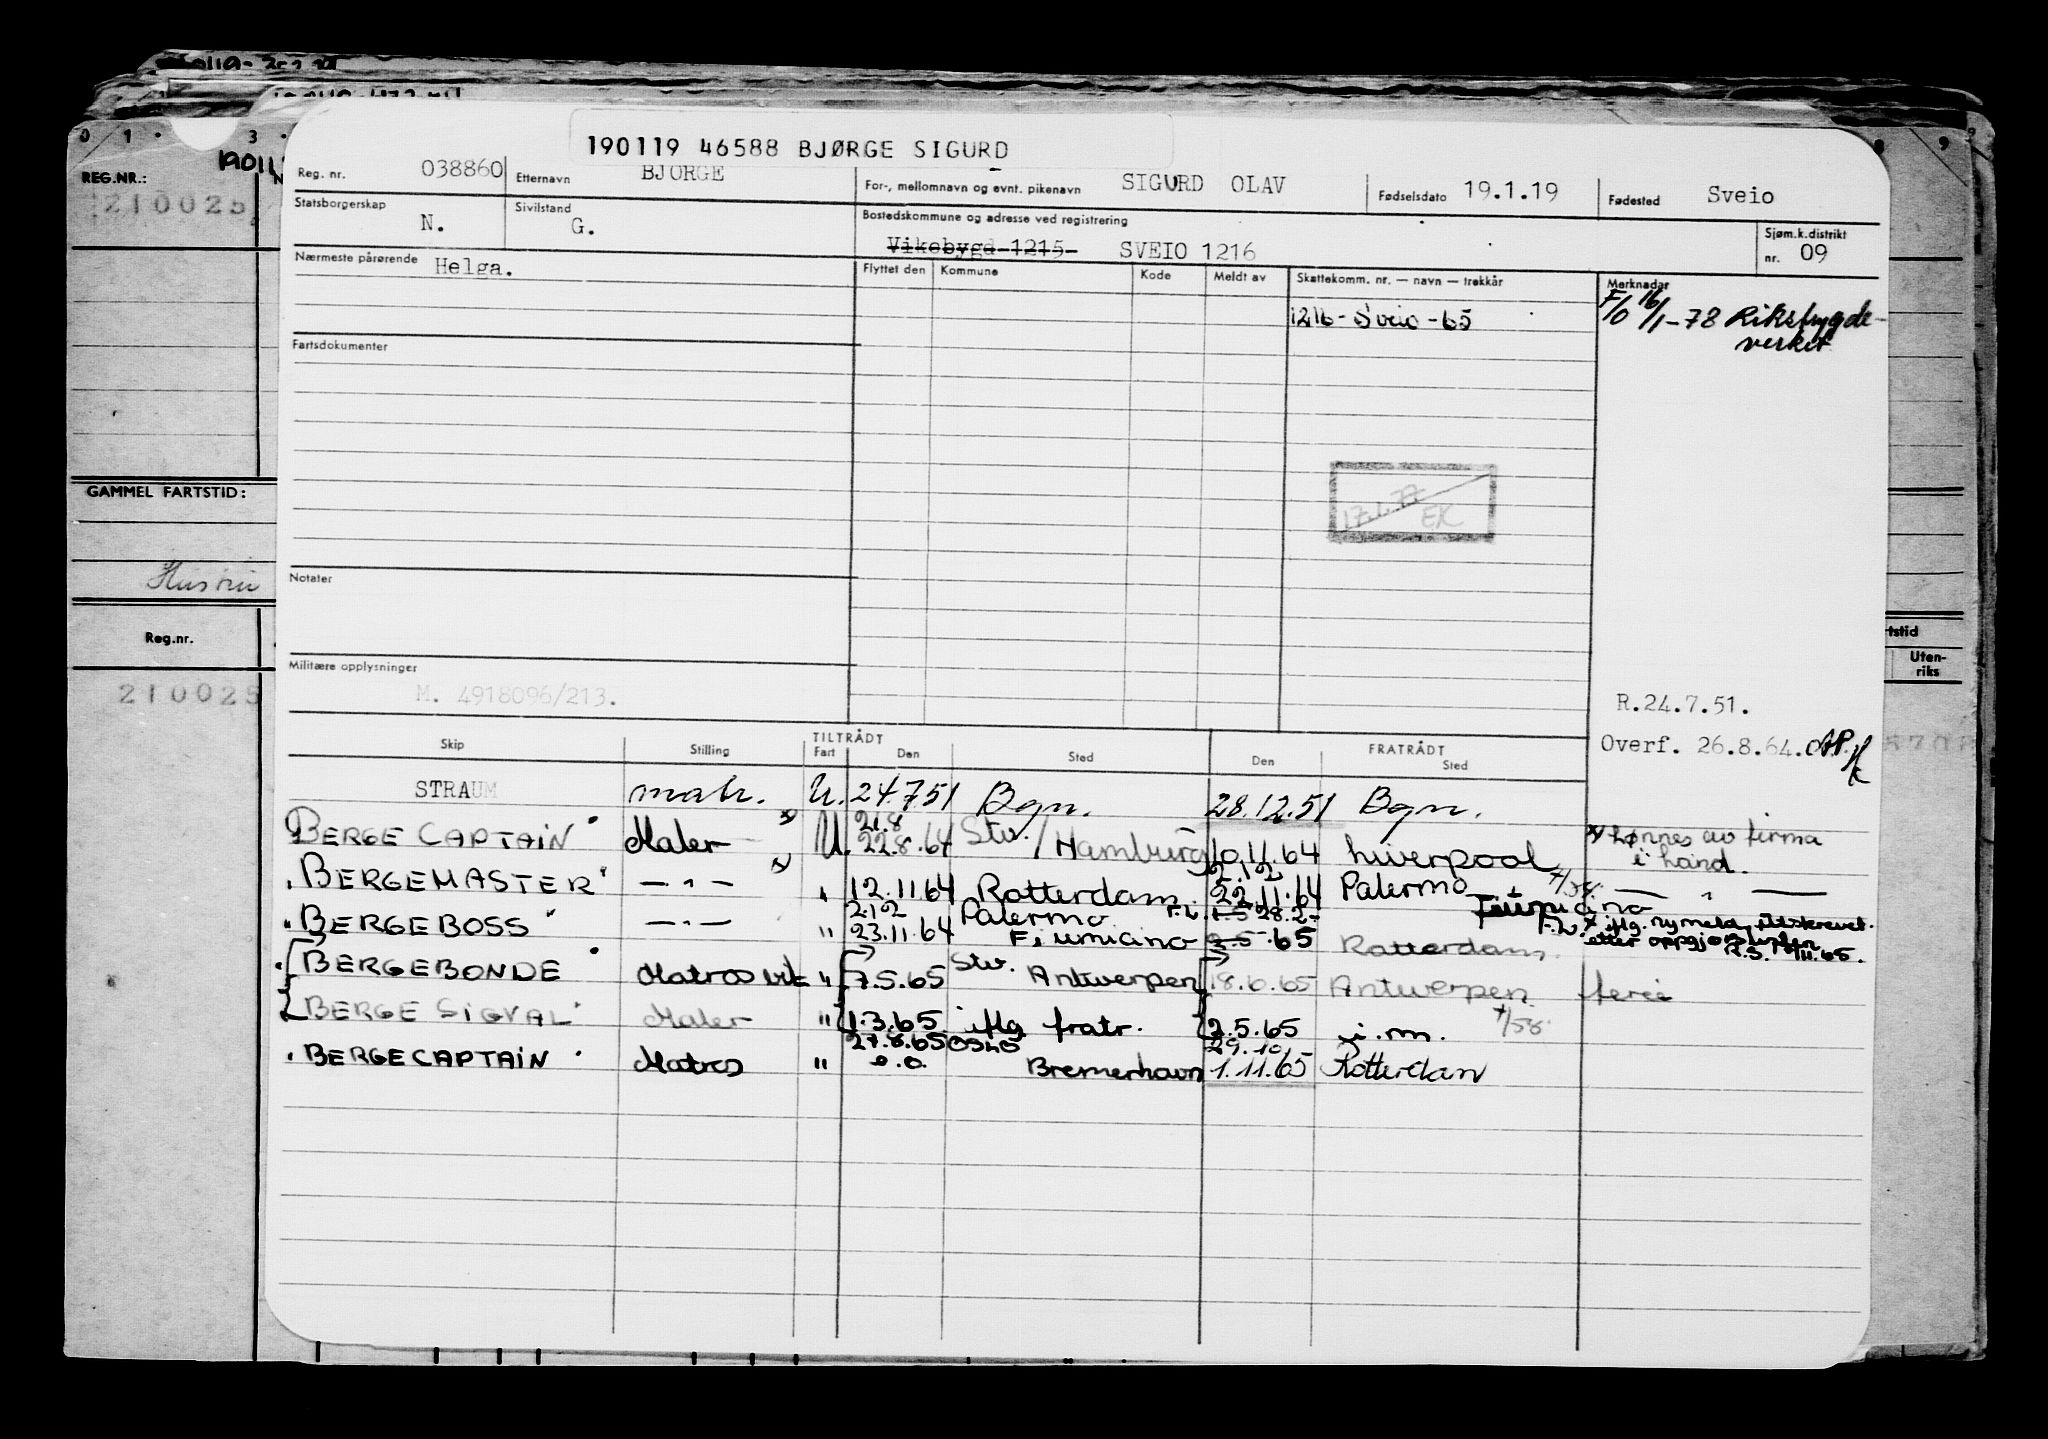 0 1 · 3 · 8 9
190119 46588 BJØRGE SIGURD
REG.NR.:
210025
Reg. nr. 038860 Etternavn BJORGE For-, mellomnavn og evnt. pikenavn SIGURD OLAV Fødselsdato 19.1.19 Fødested Sveio
Statsborgerskap N. Sivilstand G. Bostedskommune og adresse ved registrering Vikebygd 1215 SVEIO 1216 Sjøm.k.distrikt nr. 09
Nærmeste pårørende Helga. Flyttet den Kommune Kode Meldt av Skattekomm. nr. — navn — trekkår Merknader
1216 - Sveio - 65 F/0 16/1-78 Riksbygde-
verket
Fartsdokumenter
GAMMEL FARTSTID:
17.1.77 EK
Hustru
Notater
Reg.nr.
Militære opplysninger
Uten-
riks
210025
M. 4918096/213.
R.24.7.51.
Overf. 26.8.64.
Skip Stilling TILTRÅDT Fart Den Sted FRATRÅDT Den Sted
STRAUM matr. U. 24.7.51 Bgn. 28.12.51 Bgn.
"BERGE CAPTAIN" Maler x) U. 21.8 22.8.64 Stv./Hamburg 10.11.64 Liverpool x) Lønnes av firma
i land.
"BERGEMASTER" — " — x) " 12.11.64 Rotterdam 2.12 22.11.64 Palermo — " —
"BERGEBOSS" — " — " 2.12 23.11.64 Palermo Fiumicino 28.2.65 Fiumicino Rotterdam iflg. ny meld, utskrevet
etter oppgjørslisten
R.S. /11.65.
"BERGEBONDE Matros " 7.5.65 Stv. Antwerpen 18.6.65 Antwerpen ferie
BERGE SIGVAL" Maler " 1.3.65 iflg fratr. 2.5.65 i.m. +/58
"BERGECAPTAIN" Matros " 27.8.65 Oslo Bremerhavn 29.10 1.11.65 Rotterdam